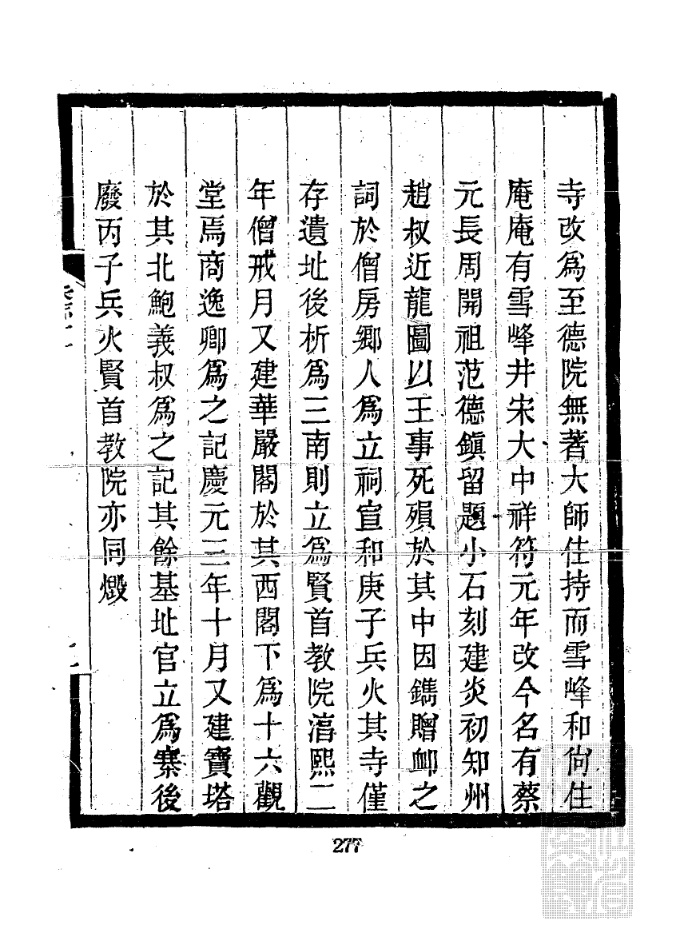 寺改爲至德院無著大師住持而雪峰和尙住
庵庵有雪峰井宋大中祥符元年改今名有蔡
元長周開祖范德鎭留題小石刻建炎初知州
趙叔近龍圖以王事死殞於其中因鐫贈卹之
詞於僧房鄉人爲立祠宣和庚子兵火其寺僅
存遺址後析爲三南則立爲賢首教院淳熙二
年僧戒月又建華嚴閣於其西閣下爲十六觀
堂焉商逸卿爲之記慶元三年十月又建寶塔
於其北鮑義叔爲之記其餘基址官立爲寨後
廢丙子兵火賢首教院亦同燬
277